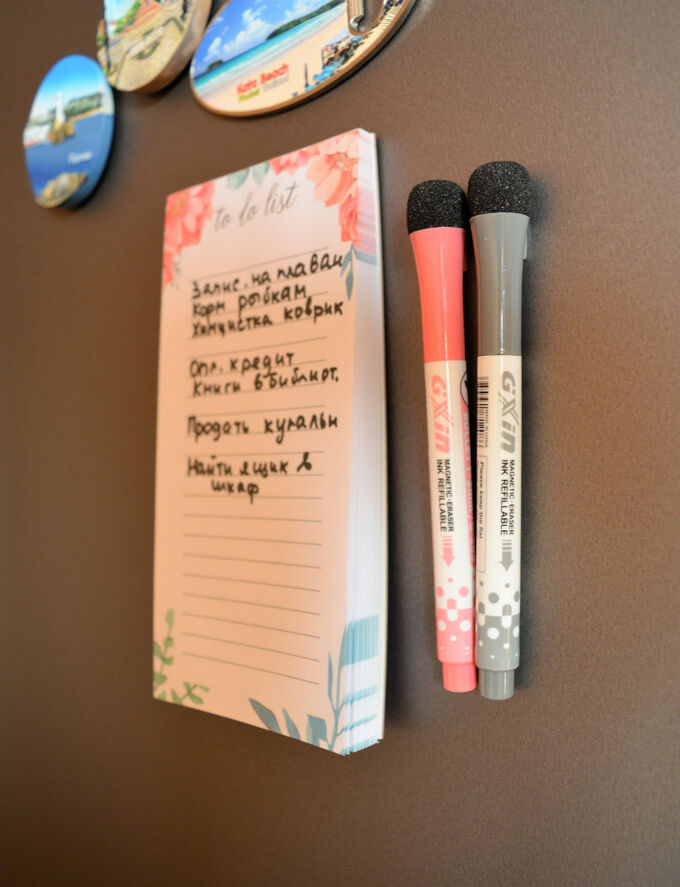 Kata Beach
Phuket Thailand
to do list
Запис. на плаван
Корм рыбкам
Химчистка коврик
Опл. кредит
Книги в библиот.
Продать купальн
Найти ящик в
шкаф
GXin
MAGNETIC·ERASER
INK REFILLABLE
GXin
MAGNETIC·ERASER
INK REFILLABLE
Please keep the flat